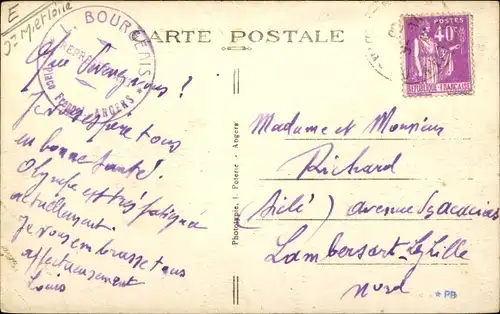 E
CARTE POSTALE
BOURGEOIS
Place
ANGERS
POSTES
40c
RÉPUBLIQUE FRANÇAISE
Que devenez vous ?
Je vous espère tous
en bonne santé.
Olympe est très fatiguée
actuellement.
Je vous embrasse tous
affectueusement
Louis
Phototypie. I. Poterie - Angers
Madame et Monsieur
Richard
avenue des acacias
Lambersart-lez-Lille
Nord
* PB